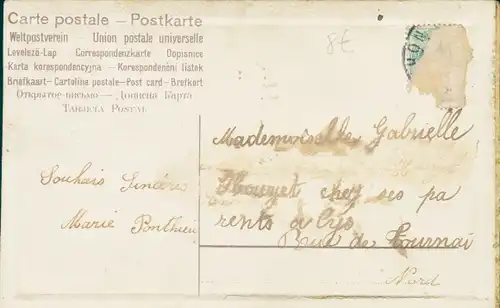 Carte postale — Postkarte
Weltpostverein — Union postale universelle
Levelező-Lap — Correspondenzkarte — Dopisnice
Karta korespondencyjna — Korespondenční lístek
Briefkaart — Cartolina postale — Post card — Brefkort
Открытое письмо — Дописна Карта
Tarjeta Postal
8€
Mademoiselle Gabrielle
chez ses pa
rents à Lys
Rue de Tournai
Nord
Souhais Sincères
Marie Ponthieu